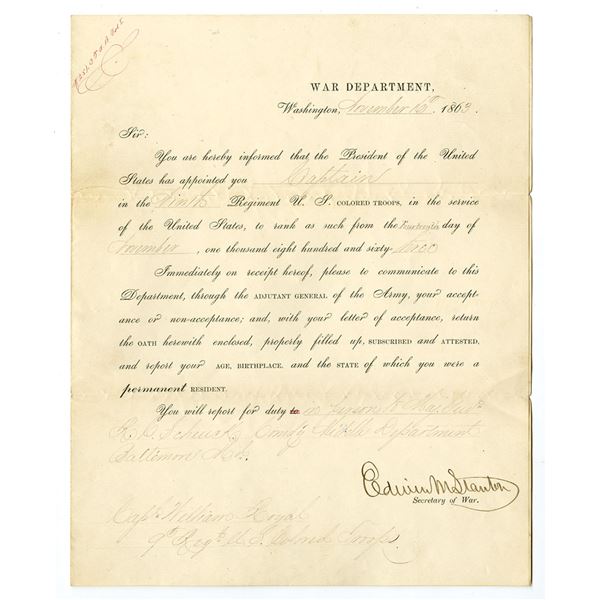 WAR DEPARTMENT,
Washington, November 16th 1863.
Sir:
You are hereby informed that the President of the United
States has appointed you Captain
in the Ninth Regiment U. S. COLORED TROOPS, in the service
of the United States, to rank as such from the day of
November, one thousand eight hundred and sixty-three
Immediately on receipt hereof, please to communicate to this
Department, through the ADJUTANT GENERAL of the Army, your accept-
ance or non-acceptance; and, with your letter of acceptance, return
the OATH herewith enclosed, properly filled up, SUBSCRIBED and ATTESTED,
and report your AGE, BIRTHPLACE, and the STATE of which you were a
permanent RESIDENT.
You will report for duty to in person to Maj. Genl.
Schenck, Comdg Middle Department
Baltimore Md.
Edwin M Stanton
Secretary of War.
Capt. William Royal
9th Regt. U. S. Colored Troops